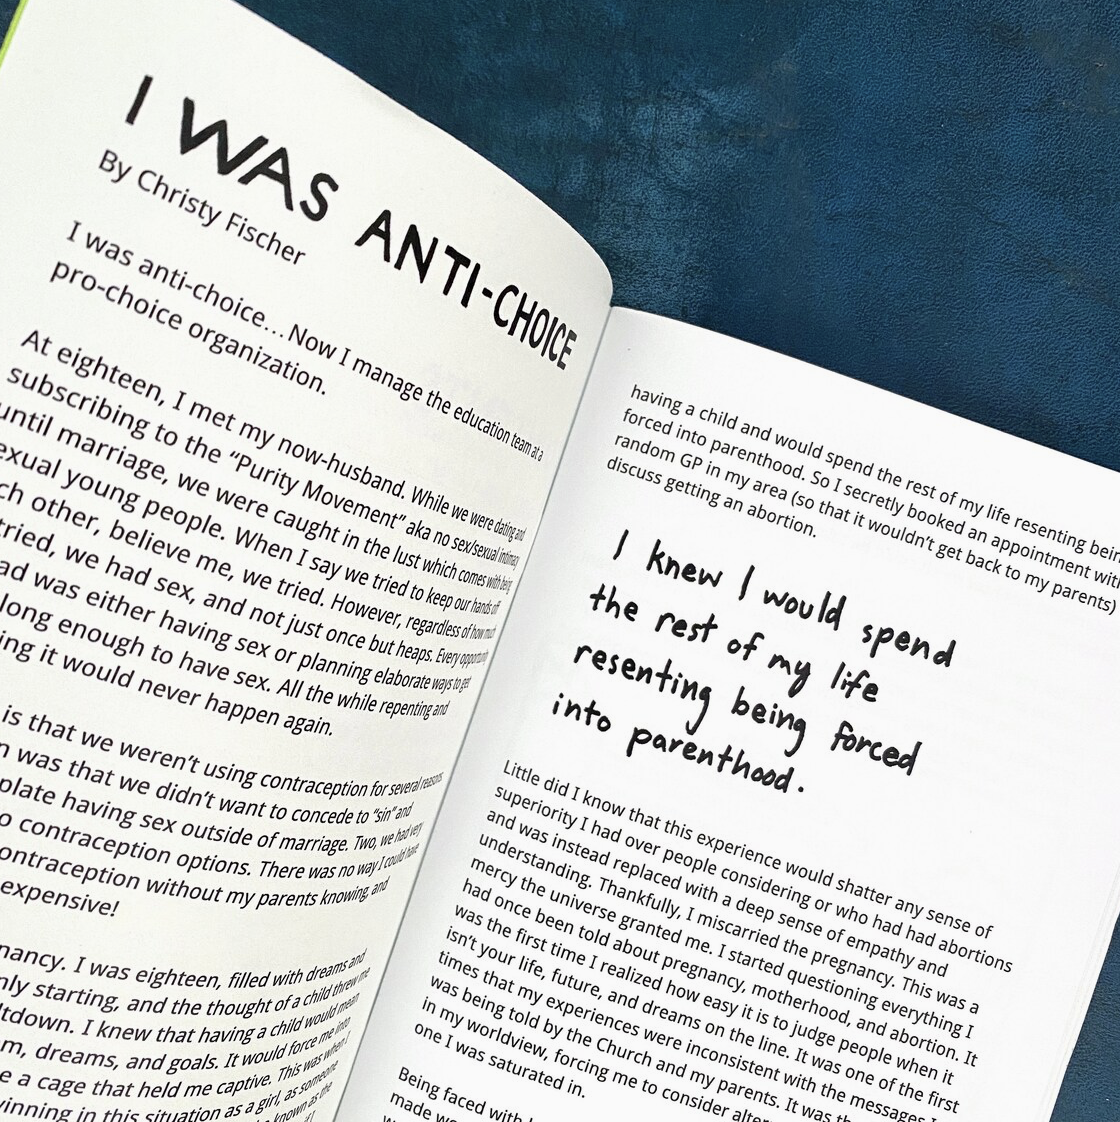 I WAS ANTI-CHOICE
By Christy Fischer
I was anti-choice...Now I manage the education team at a
pro-choice organization.
At eighteen, I met my now-husband. While we were dating and
subscribing to the “Purity Movement” aka no sex/sexual intimacy
until marriage, we were caught in the lust which comes with being
exual young people. When I say we tried to keep our hands off
ch other, believe me, we tried. However, regardless of how much
tried, we had sex, and not just once but heaps. Every opportunity
ad was either having sex or planning elaborate ways to get
long enough to have sex. All the while repenting and
ing it would never happen again.
is that we weren’t using contraception for several reasons
n was that we didn’t want to concede to “sin” and
plate having sex outside of marriage. Two, we had very
o contraception options. There was no way I could have
ontraception without my parents knowing, and
expensive!
nancy. I was eighteen, filled with dreams and
nly starting, and the thought of a child threw me
ltdown. I knew that having a child would mean
m, dreams, and goals. It would force me into
e a cage that held me captive. This was when I
inning in this situation as a girl, as someone
known as the
having a child and would spend the rest of my life resenting bein
forced into parenthood. So I secretly booked an appointment with
random GP in my area (so that it wouldn’t get back to my parents)
discuss getting an abortion.
I knew I would spend
the rest of my life
resenting being forced
into parenthood.
Little did I know that this experience would shatter any sense of
superiority I had over people considering or who had had abortions
and was instead replaced with a deep sense of empathy and
understanding. Thankfully, I miscarried the pregnancy. This was a
mercy the universe granted me. I started questioning everything I
had once been told about pregnancy, motherhood, and abortion. It
was the first time I realized how easy it is to judge people when it
isn’t your life, future, and dreams on the line. It was one of the first
times that my experiences were inconsistent with the messages I
was being told by the Church and my parents. It was th
in my worldview, forcing me to consider alter
one I was saturated in.
Being faced with
made w